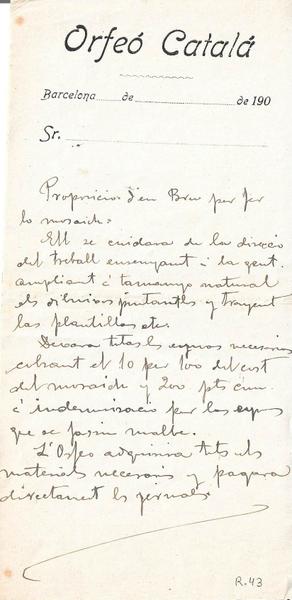 Orfeó Catalá
Barcelona de de 190
Sr.
Proposicio d'en Bru per fer
lo mosaich=
Ell se cuidara de la direcció
del treball ensenyant á la gent,
ampliant á tamany natural
els dibuixos y trayent
las plantillas etc.
Deixara totas las eynas necesarias
cobrant el 10 per 100 del cost
del mosaich y 200 pts com
á indemnisació per las eynas
que se fassin malbe.
L'Orfeo adquirira tots els
materials necesaris y pagara
directament ls jornals.
R.43